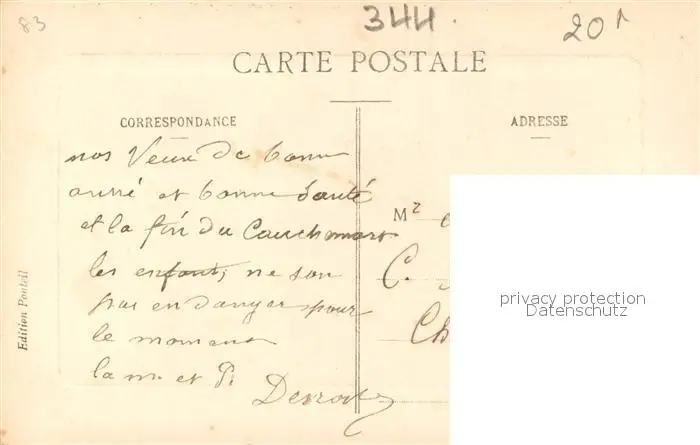 83
344.
20
CARTE POSTALE
CORRESPONDANCE
ADRESSE
nos Veux de bonne
anné et bonne Santé
et la fin du Cauchmart
les enfants, ne son
pas en danger pour
le moment
la m. et P.
M
C.
Ch
Edition Ponteil
privacy protection
Datenschutz